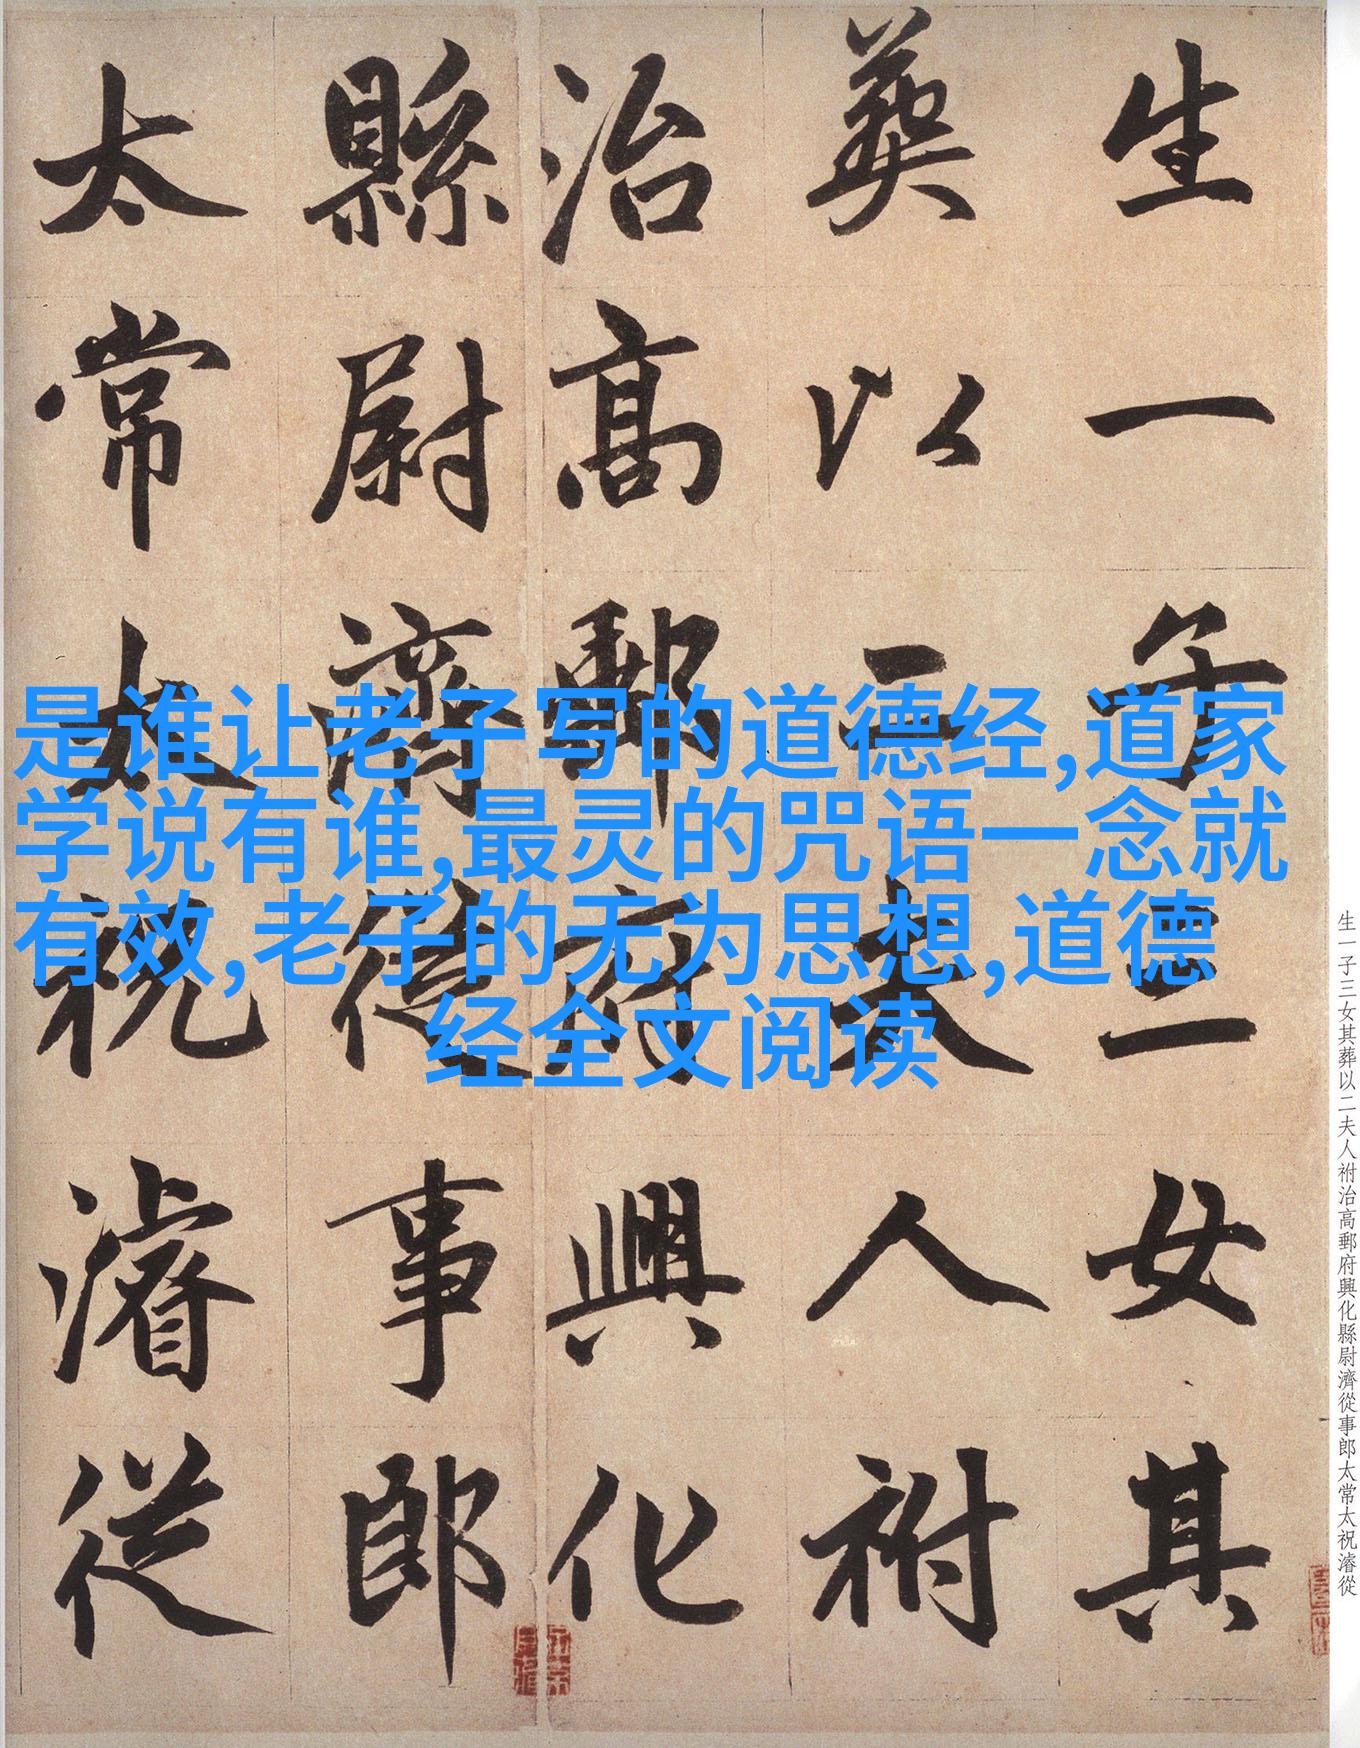 是谁让老子写的道德经,道家
学说有谁,最灵的咒语一念就
有效,老子的无为思想,道德
经全文阅读
生一子三女其
葬以二夫人祔
治高郵府興化
縣尉濟從事郎
太常太祝濬從
生一子三女其葬以二夫人祔治高郵府興化縣尉濟從事郎太常太祝濬從